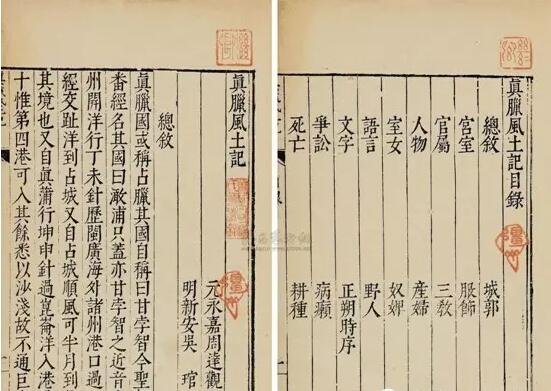 眞臘風土記目錄
總敘 城郭
宮室 服飾
官屬 三敎
人物 產婦
室女 奴婢
語言 野人
文字 正朔時序
爭訟 病癩
死亡 耕種
眞臘風土記
元永嘉周達觀
明新安吳琯
總敘
眞臘國或稱占臘其國自稱曰甘孛智今聖
番經名其國曰澉浦只蓋亦甘孛智之近音
州開洋行丁未針歷閩廣海外諸州港口過
經交趾洋到占城又自占城順風可半月到
其境也又自眞蒲行坤申針過崑崙洋入港
十惟第四港可入其餘悉以沙淺故不通巨